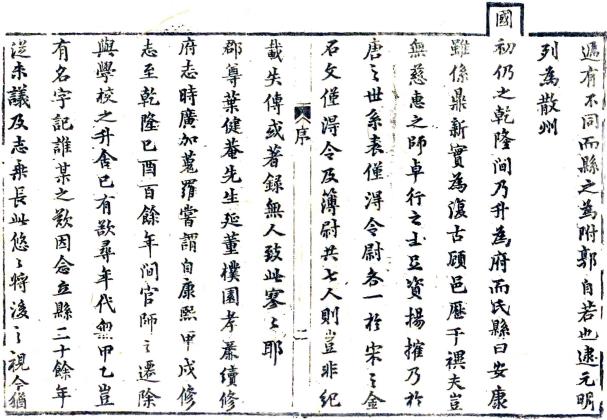 遞有不同而縣之為附郭自若也逮元明
列為散州
國
初仍之乾隆間乃升為府而氏縣曰安康
雖係鼎新實為復古顧邑歷千禩夫豈
無慈惠之師卓行之士足資揚搉乃於
唐之世系表僅得令尉各一於宋之金
石文僅得令及簿尉共七人則豈非紀
序
二
載失傳或著録無人致此寥々耶
郡尊葉健菴先生延董樸園孝廉續修
府志時廣加蒐羅嘗謂自康熙甲戍修
志至乾隆己酉百餘年間官師之遷除
與學校之升舍已有歎尋年代無甲乙豈
有名字記誰某之歎因念立縣二十餘年
從未議及志乘長此悠々將後之視今猶